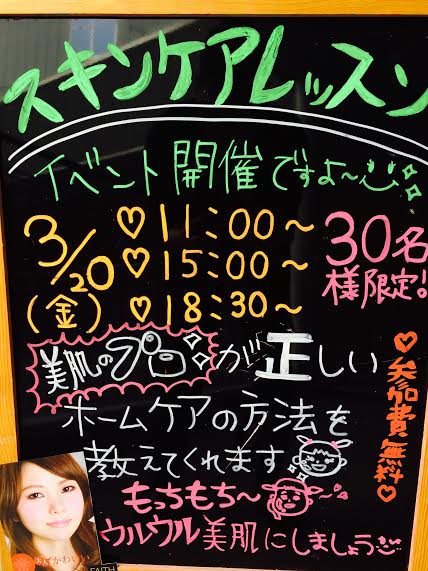 スキンケアレッスン
イベント開催ですよ～
3/20
(金)
♡11:00～
♡15:00～
♡18:30～
30名
様限定!
美肌のプロが正しい
ホームケアの方法を
教えてくれます
もっちもち～
ウルウル美肌にしましょう
♡参加費無料♡
FAITH